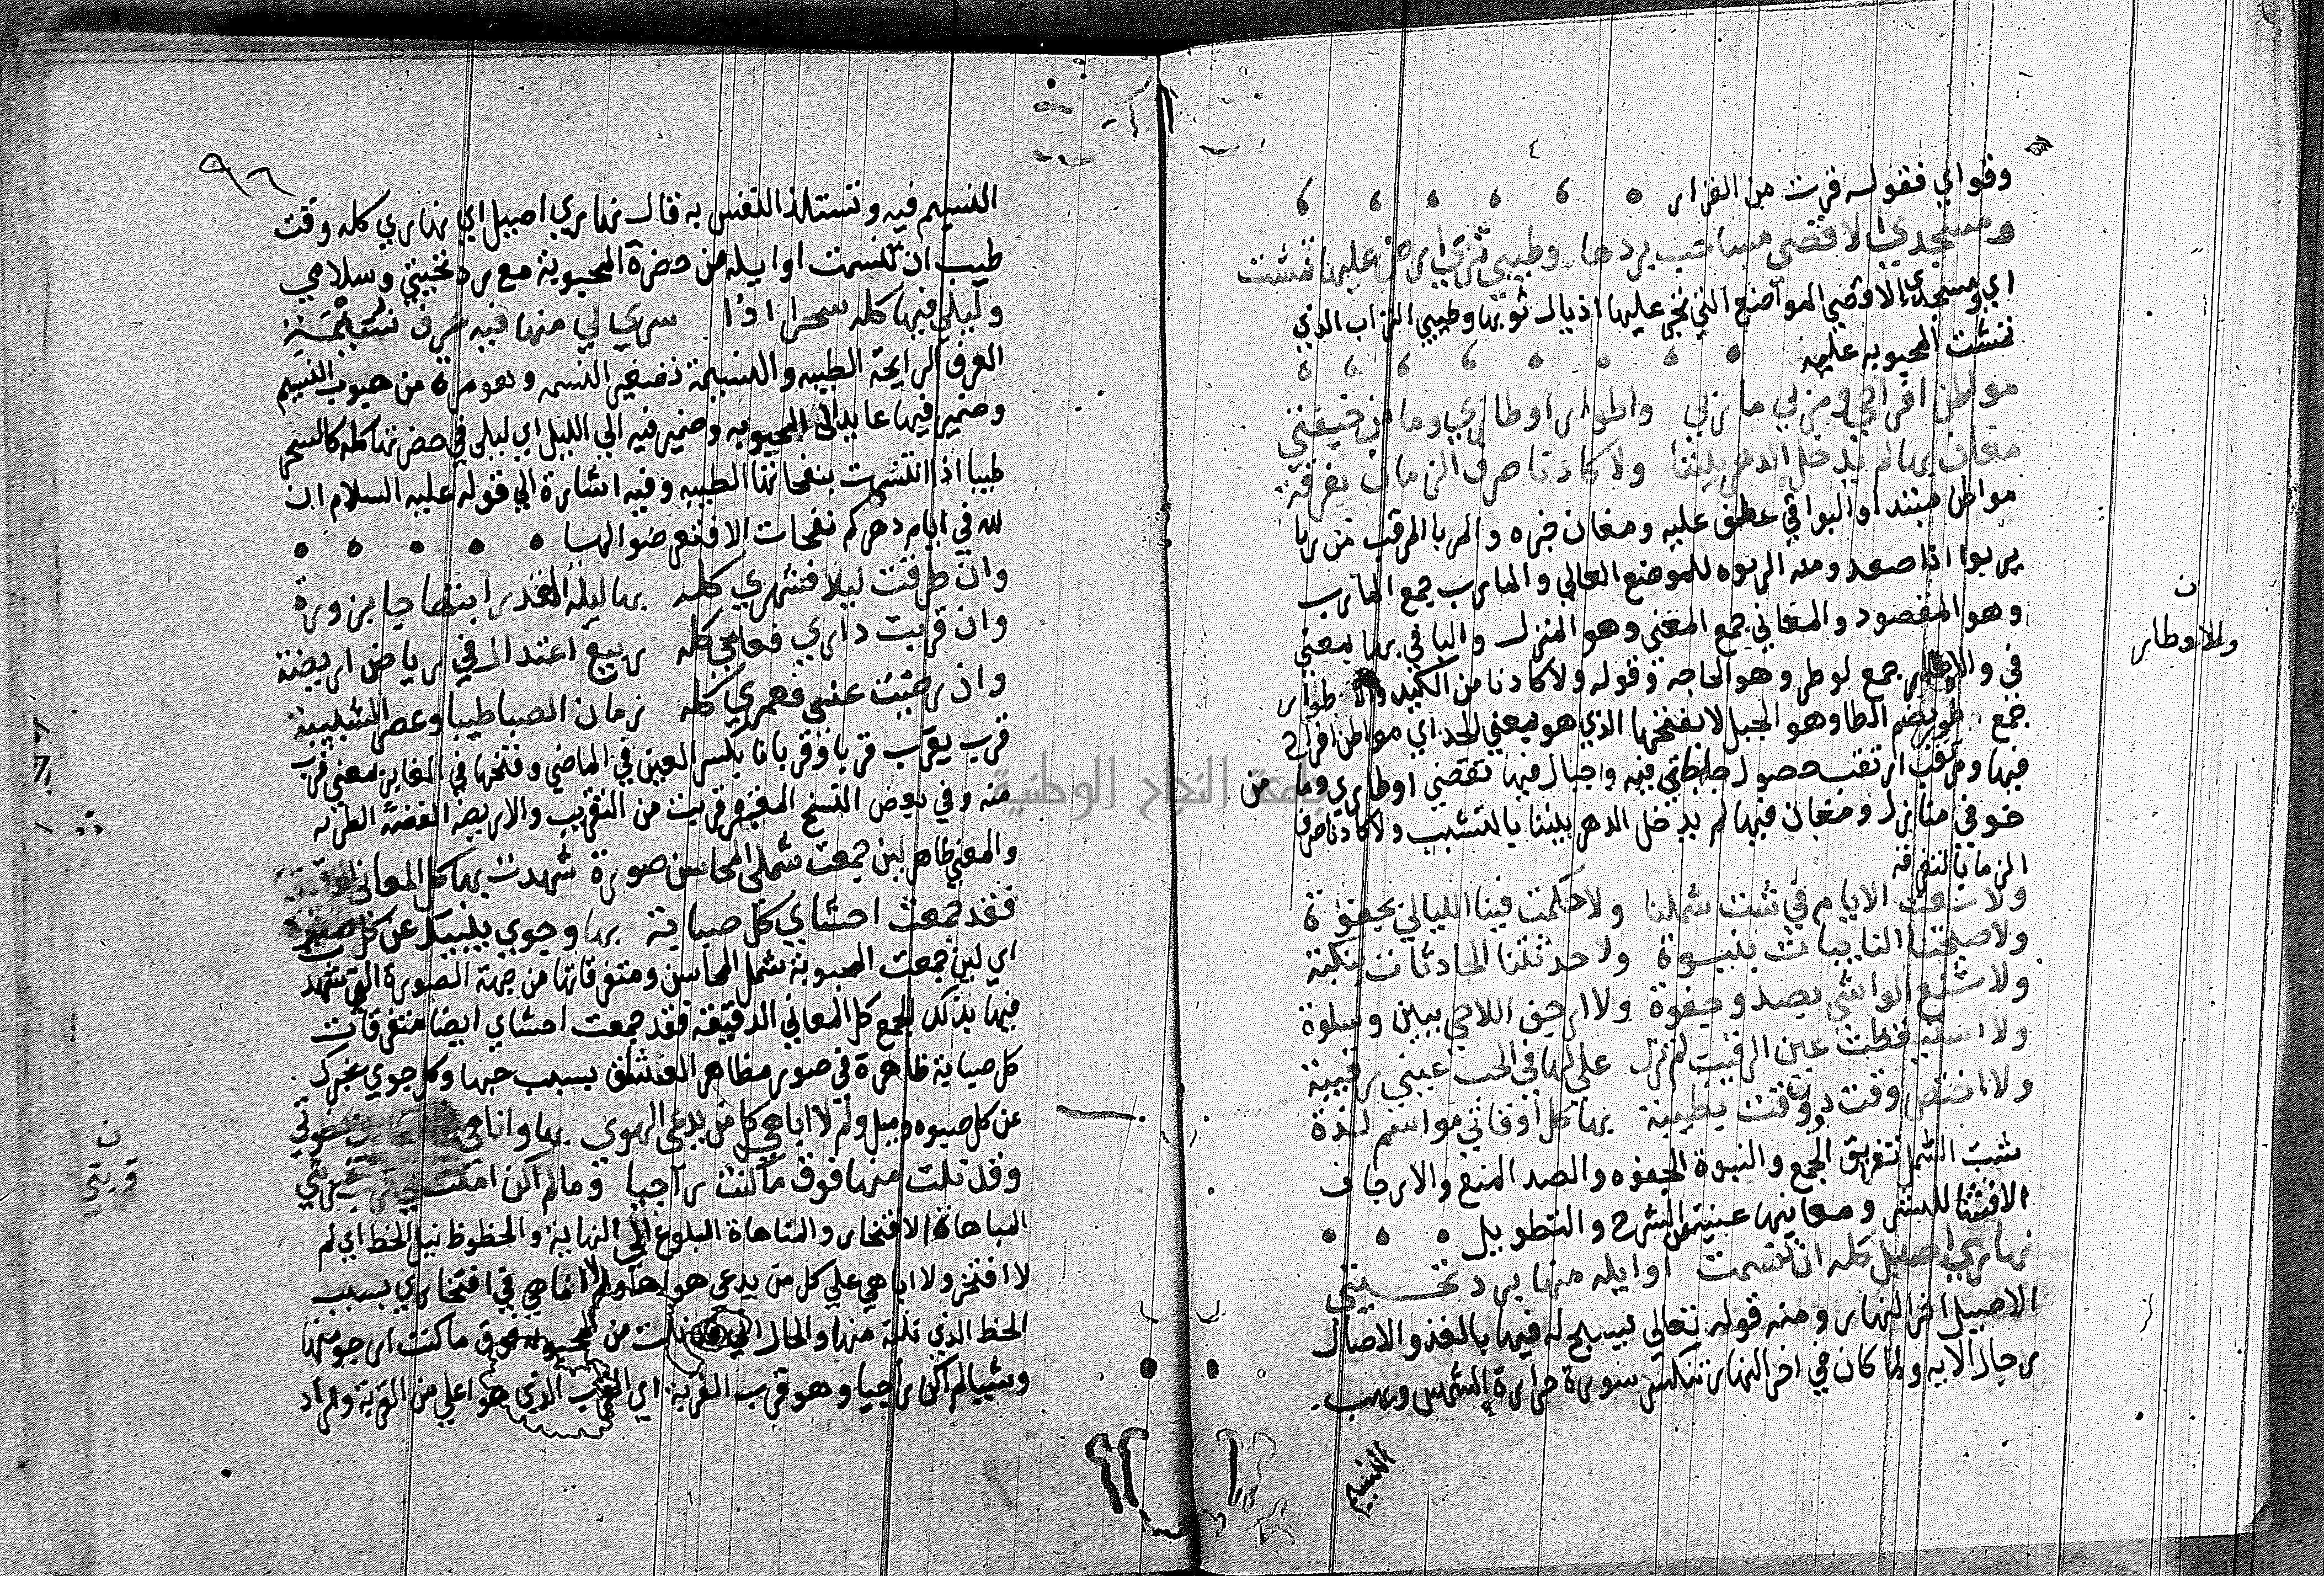 وفؤادي فقوله قرت من القرار
ومسجدي الاقصى مساحب بردها وطيبي ثرى ارض عليها تمشت
اي ومسجدي الاقصى المواضع التي تجر عليها اذيال ثوبها وطيبي التراب الذي
تمشت المحبوبه عليه
مواطن افراحي ومربي ماربي واطوار اوطاري ومامن خيفتي
مغان بها لم يدخل الدهر بيننا ولا كادنا صرف الزمان بفرقة
مواطن مبتدا والبواقي عطف عليه ومغان خبره والمربا المرقب من ربا
يربوا اذا صعد ومنه الربوه للموضع العالي والمارب جمع المارب
وهو المقصود والمغاني جمع المغنى وهو المنزل والبا في بها بمعنى
في والاوطار جمع لوطر وهو الحاجه وقوله ولا كادنا من الكيد والاطوار
جمع طور بضم الطا وهو الجبل لا بفتحها الذي هو بمعنى الحد اي مواطن افراح
فيها ومرقب ارتقب حصول حاجاتي فيه واجبال فيها تقضي اوطاري ومامن
خوفي منازل ومغان فيها لم يدخل الدهر بيننا بالتشبب ولا كادنا صرف
الزمان بالتفرقه
ولا سعت الايام في شت شملنا ولا حكمت فينا الليالي بجفوة
ولا صبحتنا النايبات بنبوة ولا حدثتنا الحادثات بنكبة
ولا شنع الواشي بصد وجفوة ولا ارجف اللاحي ببين وسلوة
ولا استيقظت عين الرقيب لم تزل علي لها في الحب عيني رقيبة
ولا اختص وقت دون وقت بطيبة بها كل اوقاتي مواسم لذة
شت الشمل تفريق الجمع والنبوة الجفوه والصد المنع والارجاف
الافشا للستر ومعانيها غنية عن الشرح والتطويل
نهاري اصيل كله ان تنسمت اوايله منها برد تحيتي
الاصيل اخر النهار ومنه قوله تعالى يسبح له فيها بالغدو والاصال
رجال الايه ولما كان في اخر النهار تنكسر سورة حرارة الشمس ويهب
النسيم
ن
والاوطار
٩٦
النسيم فيه وتستلذ النفس به قال نهاري اصيل اي نهاري كله وقت
طيب ان تنسمت اوايله من حضرة المحبوبة مع رد تحيتي وسلامي
وليلي فيها كله سحر اذا سرى لي منها فيه عرف نسيمة
العرف الرايحة الطيبه والنسيمة تصغير النسمه وهو مرة من هبوب النسيم
وضمير فيها عايد الى المحبوبه وضمير فيه الى الليل اي ليلي في حضرتها كله كالسحر
طيبا اذا انتشرت بنفحاتها الطيبه وفيه اشارة الى قوله عليه السلام ان
لله في ايام دهركم نفحات الا فتعرضوا لها
وان طرقت ليلا فشهري كله بها ليلة القدر ابتهاجا بزورة
وان قربت داري فعامي كله ربيع اعتدال في رياض اريضة
وان رضيت عني فعمري كله زمان الصبا طيبا وعصر الشبيبة
قرب يقرب قربا وقربانا بكسر العين في الماضي وفتحها في الغاير بمعنى قرب
منه وفي بعض النسخ المقروة قربت من التقريب والاريضه الغضة الطريه
والمعنى ظاهر لئن جمعت شمل المحاسن صورة شهدت بها كل المعاني الدقيقة
فقد جمعت احشاي كل صبابة بها وجوى ينبيك عن كل صبوة
اي لئن جمعت المحبوبة شمل المحاسن ومتفرقاتها من جهة الصورة التي تشهد
فيها بذلك الجمع كل المعاني الدقيقة فقد جمعت احشاي ايضا متفرقات
كل صبابة ظاهرة في صور مظاهر العشاق بسبب حبها وكل جوى يخبرك
عن كل صبوه وميل ولم لا اباهي كل من يدعي الهوى بها واناهي
وقد نلت منها فوق ما كنت راجيا وما لم اكن املت
المباهاة الافتخار والتناهاة البلوغ الى النهاية والحظوظ نيل الحظ اي لم
لا افتخر ولا اباهي على كل من يدعي هواها ولم لا اناهي في افتخاري بسبب
الحظ الذي نلته منها والحال اني قد نلت من المحبوبة فوق ما كنت ارجو منها
وشيا لم اكن راجيا وهو قرب القربة اي القرب الذي هو اعلى من القربة والمراد
ن
قربتي
جامعة النجاح الوطنية